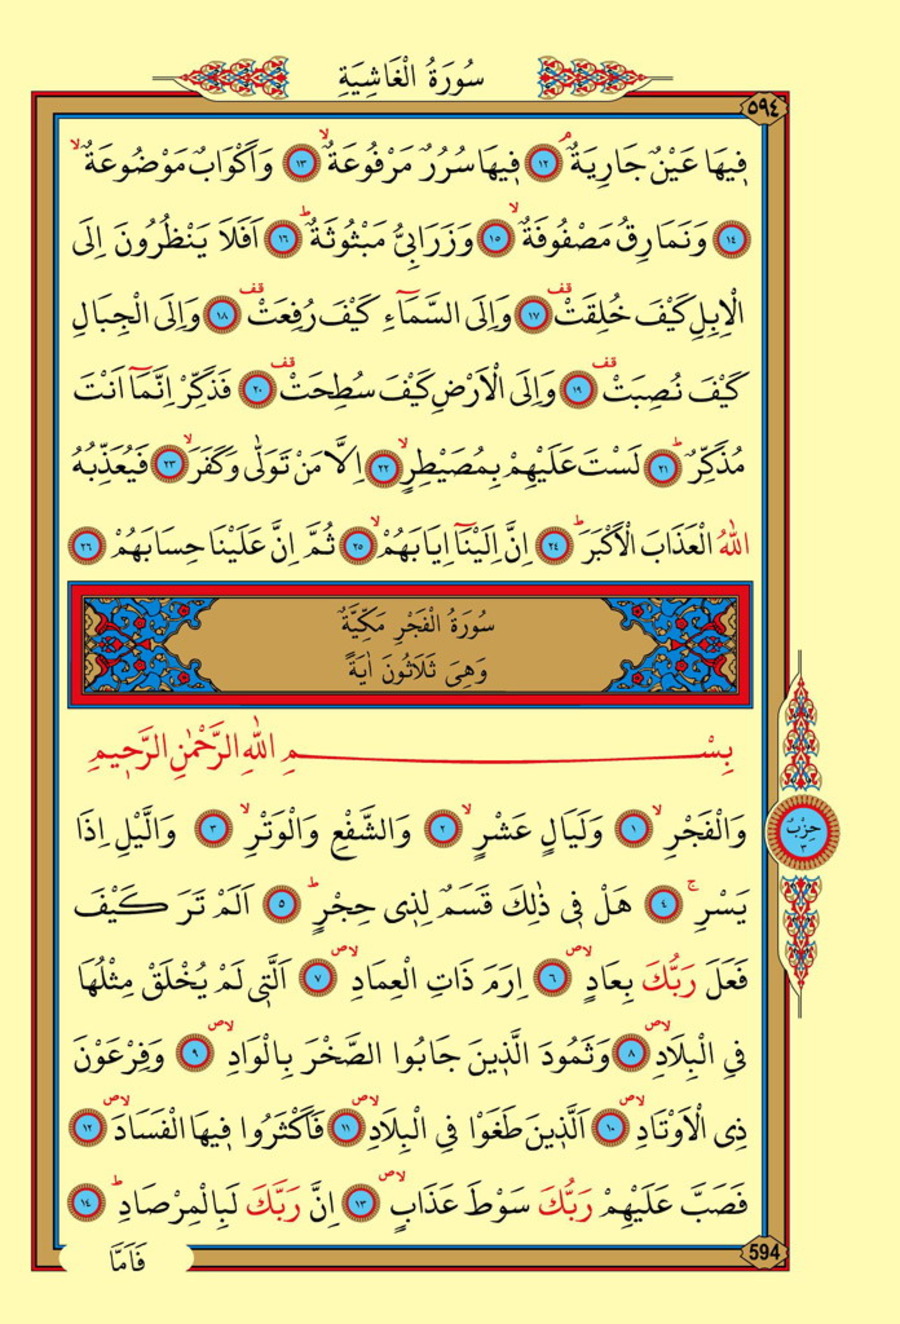 سُورَةُ الْغَاشِيَةِ
٥٩٤
فِيهَا عَيْنٌ جَارِيَةٌۢ ﴿١٢﴾ فِيهَا سُرُرٌ مَرْفُوعَةٌۙ ﴿١٣﴾ وَاَكْوَابٌ مَوْضُوعَةٌۙ
﴿١٤﴾ وَنَمَارِقُ مَصْفُوفَةٌۙ ﴿١٥﴾ وَزَرَابِىُّ مَبْثُوثَةٌۜ ﴿١٦﴾ اَفَلَا يَنْظُرُونَ اِلَى
الْاِبِلِ كَيْفَ خُلِقَتْ قف ﴿١٧﴾ وَاِلَى السَّمَٓاءِ كَيْفَ رُفِعَتْ قف ﴿١٨﴾ وَاِلَى الْجِبَالِ
كَيْفَ نُصِبَتْ قف ﴿١٩﴾ وَاِلَى الْاَرْضِ كَيْفَ سُطِحَتْ قف ﴿٢٠﴾ فَذَكِّرْ اِنَّمَٓا اَنْتَ
مُذَكِّرٌۜ ﴿٢١﴾ لَسْتَ عَلَيْهِمْ بِمُصَيْطِرٍۙ ﴿٢٢﴾ اِلَّا مَنْ تَوَلّٰى وَكَفَرَۙ ﴿٢٣﴾ فَيُعَذِّبُهُ
اللّٰهُ الْعَذَابَ الْاَكْبَرَۜ ﴿٢٤﴾ اِنَّ اِلَيْنَٓا اِيَابَهُمْۙ ﴿٢٥﴾ ثُمَّ اِنَّ عَلَيْنَا حِسَابَهُمْ ﴿٢٦﴾
سُورَةُ الْفَجْرِ مَكِّيَّةٌ
وَهِىَ ثَلَاثُونَ اٰيَةً
بِسْمِ اللّٰهِ الرَّحْمٰنِ الرَّحِيمِ
وَالْفَجْرِۙ ﴿١﴾ وَلَيَالٍ عَشْرٍۙ ﴿٢﴾ وَالشَّفْعِ وَالْوَتْرِۙ ﴿٣﴾ وَالَّيْلِ اِذَا
حِزْبٌ
٣
يَسْرِۚ ﴿٤﴾ هَلْ فِى ذٰلِكَ قَسَمٌ لِذِى حِجْرٍۜ ﴿٥﴾ اَلَمْ تَرَ كَيْفَ
فَعَلَ رَبُّكَ بِعَادٍ لاص ﴿٦﴾ اِرَمَ ذَاتِ الْعِمَادِ لاص ﴿٧﴾ اَلَّتِى لَمْ يُخْلَقْ مِثْلُهَا
فِى الْبِلَادِ لاص ﴿٨﴾ وَثَمُودَ الَّذِينَ جَابُوا الصَّخْرَ بِالْوَادِ لاص ﴿٩﴾ وَفِرْعَوْنَ
ذِى الْاَوْتَادِ لاص ﴿١٠﴾ اَلَّذِينَ طَغَوْا فِى الْبِلَادِ لاص ﴿١١﴾ فَاَكْثَرُوا فِيهَا الْفَسَادَ لاص ﴿١٢﴾
فَصَبَّ عَلَيْهِمْ رَبُّكَ سَوْطَ عَذَابٍ لاص ﴿١٣﴾ اِنَّ رَبَّكَ لَبِالْمِرْصَادِۜ ﴿١٤﴾
594
فَاَمَّا